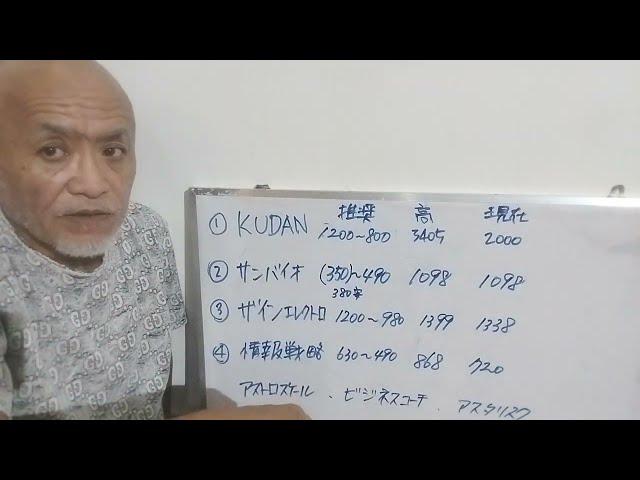 推奨 高 現在
① KUDAN 1200~800 3405 2000
② サンバイオ (350)~490 1098 1098
380
③ ザインエレクトロ 1200~980 1399 1338
④ 情報戦略 630~490 868 720
アストロスケール、ビジネスコーチ、アスタリスク